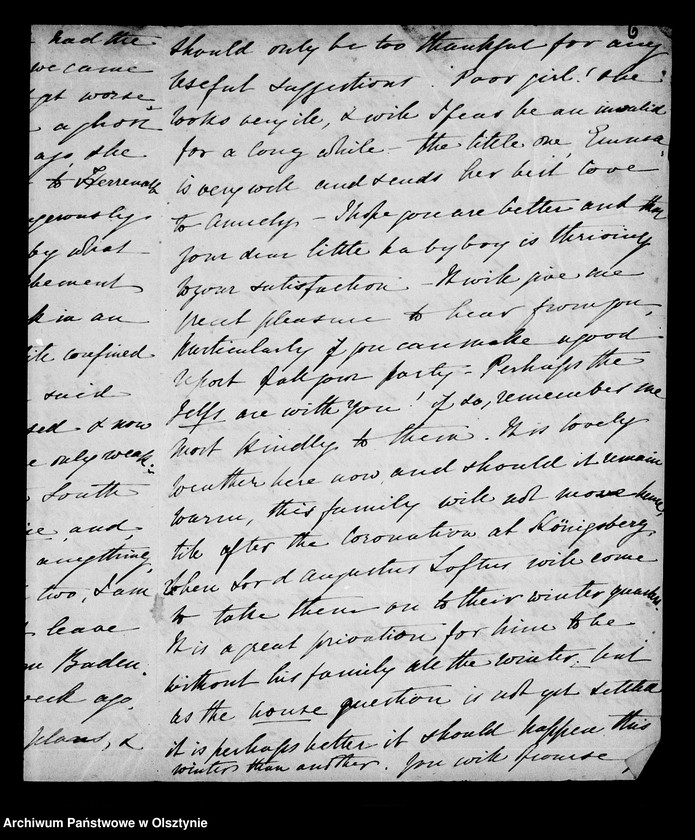 6
had the
we came
get worse
a ghost
ago, she
to Herrenalb
gerously
by what
bement
k in an
confined
said
sed & now
e only weak
South
and
anything,
two, I am
leave
Baden.
eek ago,
plans, &
should only be too thankful for any
useful suggestions. Poor girl! she
looks very ill, & will I fear be an invalid
for a long while – the little one, Emma,
is very well and sends her best love
to Annely – I hope you are better and that
your dear little babyboy is thriving
to your satisfaction – It will give me
great pleasure to hear from you,
particularly if you can make a good
report of all your party – Perhaps the
Jelfs are with you! if so, remember me
most kindly to them. It is lovely
weather here now and should it remain
warm, this family will not move home,
till after the Coronation at Königsberg,
when Lord Augustus Loftus will come
to take them on to their winter quarters
It is a great privation for him to be
without his family all the winter, but
as the house question is not yet settled
it is perhaps better it should happen this
winter than another. You will promise
Archiwum Państwowe w Olsztynie